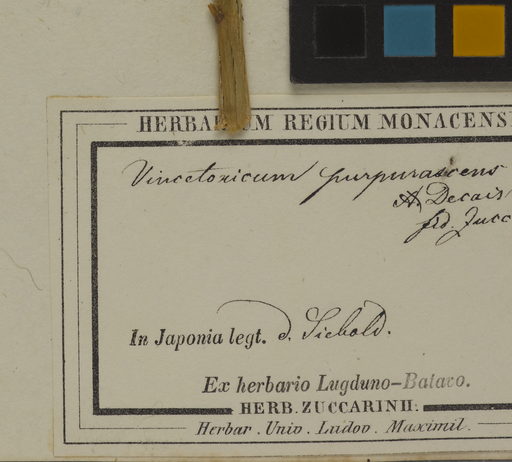 HERBARIUM REGIUM MONACENS
Vincetoxicum purpurascens
A. Decais
fid. Zucc
In Japonia legt. d. Siebold.
Ex herbario Lugduno-Batavo.
HERB. ZUCCARINII.
Herbar. Univ. Ludov. Maximil.